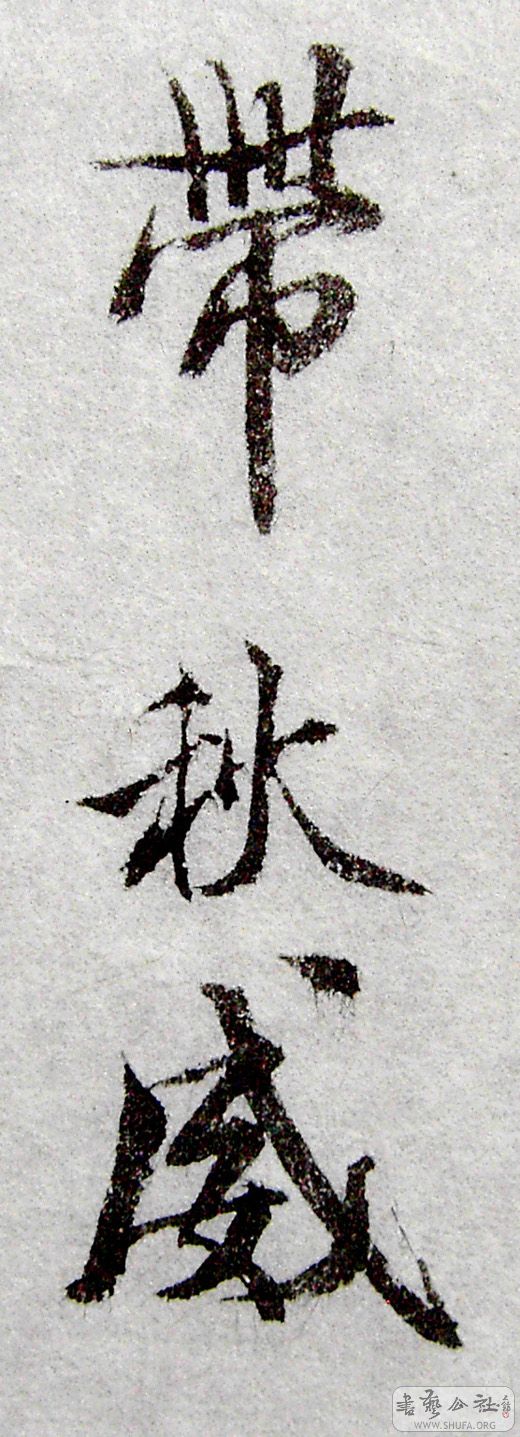 帶秋威
書藝公社
WWW.SHUFA.ORG